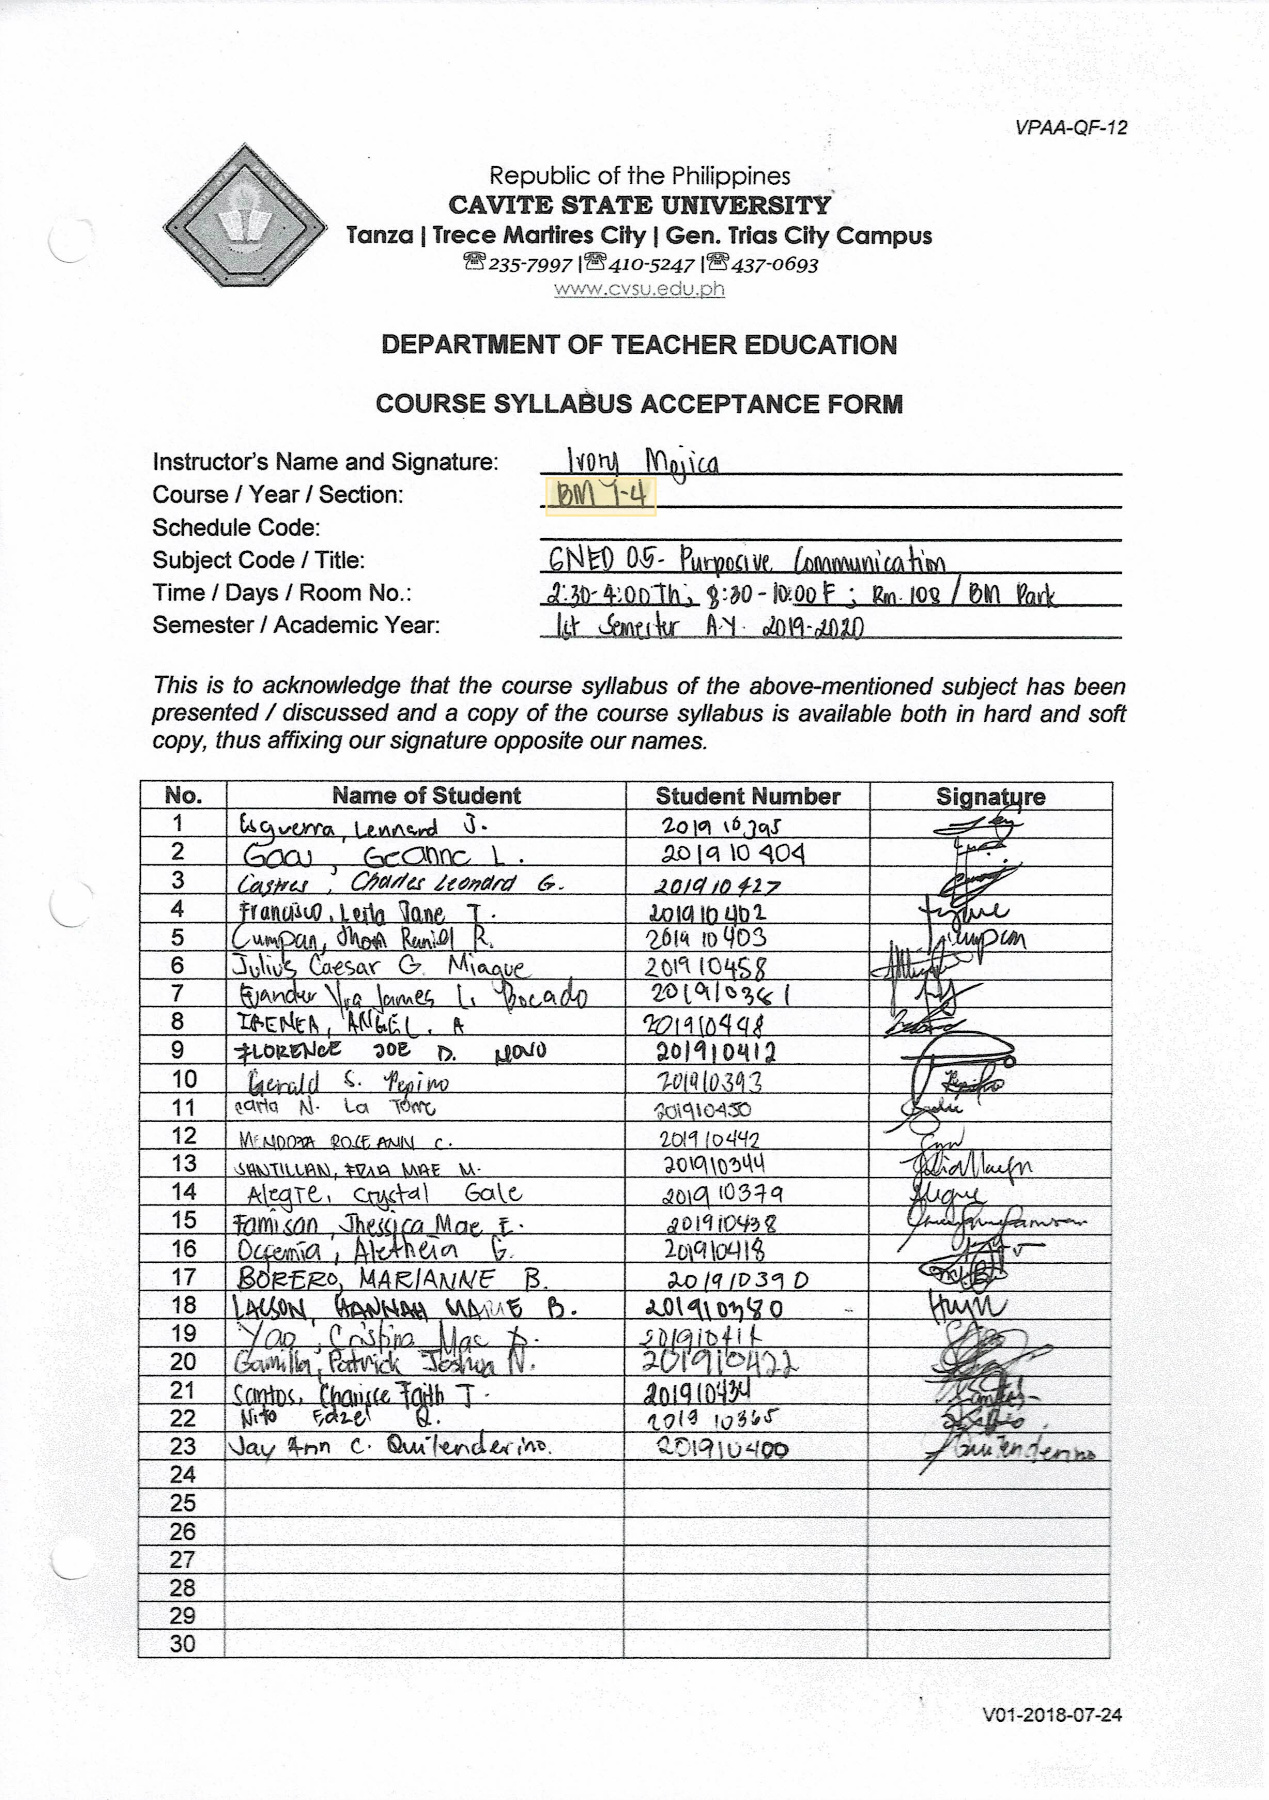 VPAA-QF-12
Republic of the Philippines
CAVITE STATE UNIVERSITY
Tanza | Trece Martires City | Gen. Trias City Campus
☎235-7997 |☎410-5247 |☎437-0693
www.cvsu.edu.ph
DEPARTMENT OF TEACHER EDUCATION
COURSE SYLLABUS ACCEPTANCE FORM
Instructor's Name and Signature: Ivory Mojica
Course / Year / Section: BM 1-4
Schedule Code:
Subject Code / Title: GNED 05- Purposive Communication
Time / Days / Room No.: 2:30-4:00 Th; 8:30-10:00 F ; Rm. 108 / BM Park
Semester / Academic Year: 1st Semester A.Y. 2019-2020
This is to acknowledge that the course syllabus of the above-mentioned subject has been
presented / discussed and a copy of the course syllabus is available both in hard and soft
copy, thus affixing our signature opposite our names.
No. Name of Student Student Number Signature
1 Esguerra, Lennard J. 201910395
2 Geanne L. 201910404
3 Castres, Charles Leonard G. 201910427
4 Francisco, Leila Jane T. 201910402
5 Cumpan, Jhom Raniel R. 201910403
6 Julius Caesar G. Miague 201910458
7 James L. Bocado 201910381
8 IBENEA, ANGEL. A 201910448
9 FLORENCE JOE D. NOVO 201910412
10 Gerald S. Pepino 201910393
11 Carla N. La Torre 201910450
12 MENDOZA ROSE ANN C. 201910442
13 SANTILLAN, FRIA MAE M. 201910344
14 Alegre, Crystal Gale 201910379 Alegre
15 Famisan, Jhessica Mae E. 201910438
16 Ocfemia, Aletheia G. 201910418
17 BORERO, MARIANNE B. 201910390
18 LACSON, HANNAH MARIE B. 201910380
19 Yao, Cristina Mae D.
20 Gamilla, Patrick Joshua N. 201910422
21 Santos, Charisse Faith T. 201910434
22 Nito Edzel Q. 201910365
23 Jay Ann C. Quitenderino. 201910400 Quitenderino
24
25
26
27
28
29
30
V01-2018-07-24